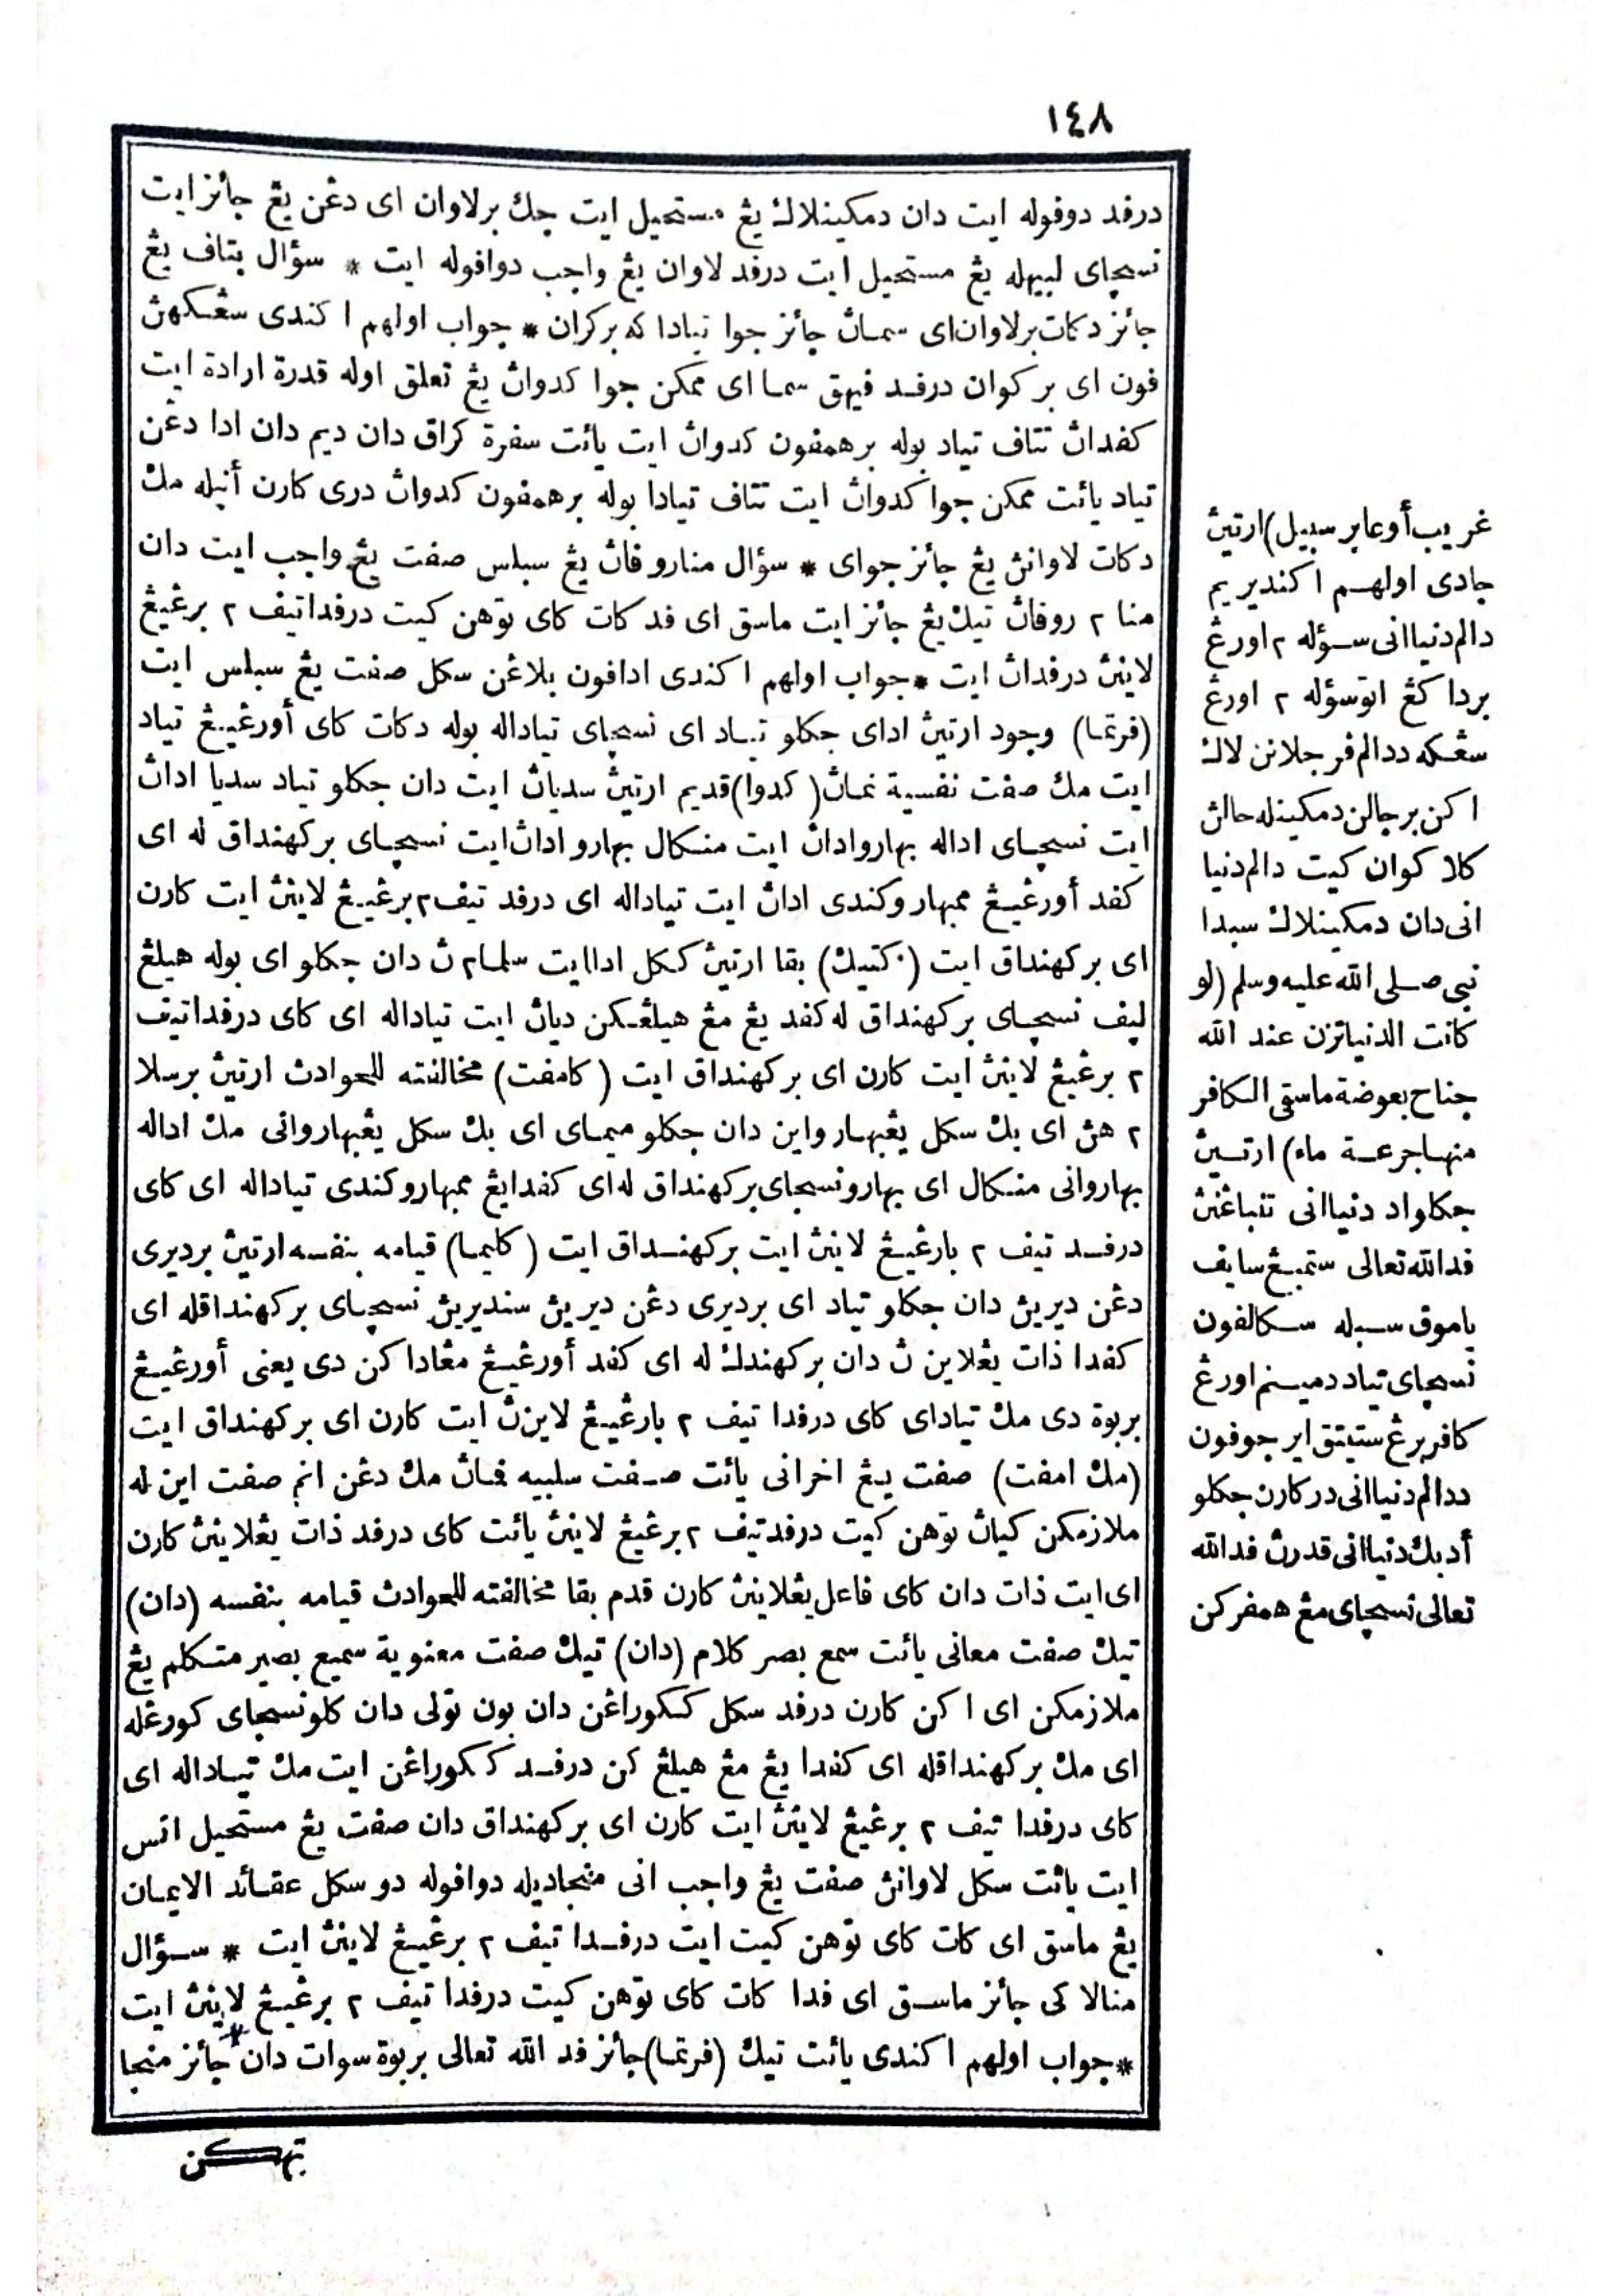 ١٤٨
درفد دوفوله ايت دان دمكينلاك يڠ مستحيل ايت جك برلاوان اى دڠن يڠ جائز ايت
نسچاى لبيهله يڠ مستحيل ايت درفد لاوان يڠ واجب دوافوله ايت * سؤال بتاف يڠ
جائز دكات برلاوان اى سمان جائز جوا تيادا كه بركران * جواب اولهم اكندى سڠكهن
فون اى بركوان درفد فيهق سما اى ممكن جوا كدوان يڠ تعلق اوله قدرة ارادة ايت
كفدان تتاف تياد بوله برهمفون كدوان ايت يائت سفرة كراق دان ديم دان ادا دڠن
تياد يائت ممكن جوا كدوان ايت تتاف تيادا بوله برهمفون كدوان درى كارن أنيله مك
دكات لاوانن يڠ جائز جواى * سؤال منارو فان يڠ سبلس صفت يڠ واجب ايت دان
منا ٢ روفان تيك يڠ جائز ايت ماسق اى فد كات كاى توهن كيت درفدا تيف ٢ برڠيڠ
لاينن درفدان ايت * جواب اولهم اكندى ادافون بلاڠن سكل صفت يڠ سبلس ايت
(فرتما) وجود ارتين اداى جكلو تياد اى نسچاى تياداله بوله دكات كاى أورڠيڠ تياد
ايت مك صفت نفسية نمان (كدوا) قديم ارتين سديان ايت دان جكلو تياد سديا ادان
ايت نسچاى اداله بهارو ادان ايت منكال بهارو ادان ايت نسچاى بركهنداق له اى
كفد أورڠيڠ ممبهارو كندى ادان ايت تياداله اى درفد تيف ٢ برڠيڠ لاينن ايت كارن
اى بركهنداق ايت (كتيك) بقا ارتين ككل ادا ايت سلما ٢ ن دان جكلو اى بوله هيلڠ
ليف نسچاى بركهنداق له كفد يڠ مڠ هيلڠكن ديان ايت تياداله اى كاى درفدا تيف
٢ برڠيڠ لاينن ايت كارن اى بركهنداق ايت (كامفت) مخالفته للحوادث ارتين برسلا
٢ هن اى بك سكل يڠبهارو اين دان جكلو ميماى اى بك سكل يڠبهارو انى مك اداله
بهارو انى منكال اى بهارو نسچاى بركهنداق له اى كفدا يڠ ممبهارو كندى تياداله اى كاى
درفد تيف ٢ بارڠيڠ لاينن ايت بركهنداق ايت (كليما) قيامه بنفسه ارتين برديرى
دڠن ديرين دان جكلو تياد اى برديرى دڠن ديرين سنديرين نسچاى بركهنداقله اى
كفدا ذات يڠلاين ن دان بركهندك له اى كفد أورڠيڠ مڠادا كن دى يعنى أورڠيڠ
بربوة دى مك تياداى كاى درفدا تيف ٢ بارڠيڠ لاينن ايت كارن اى بركهنداق ايت
(مك امفت) صفت يڠ اخرانى يائت صفت سلبيه فمان مك دڠن انم صفت اين له
ملازمكن كيان توهن كيت درفد تيف ٢ برڠيڠ لاينن يائت كاى درفد ذات يڠلاينن كارن
اى ايت ذات دان كاى فاعل يڠلاينن كارن قدم بقا مخالفته للحوادث قيامه بنفسه (دان)
تيك صفت معانى يائت سمع بصر كلام (دان) تيك صفت معنوية سميع بصير متكلم يڠ
ملازمكن اى اكن كارن درفد سكل ككوراڠن دان بون تولى دان كلو نسچاى كورڠله
اى مك بركهنداقله اى كفدا يڠ مڠ هيلڠ كن درفد ككوراڠن ايت مك تياداله اى
كاى درفدا تيف ٢ برڠيڠ لاينن ايت كارن اى بركهنداق دان صفت يڠ مستحيل اتس
ايت يائت سكل لاوانن صفت يڠ واجب انى منجاديله دوافوله دو سكل عقائد الايمان
يڠ ماسق اى كات كاى توهن كيت ايت درفدا تيف ٢ برڠيڠ لاينن ايت * سؤال
منالا كى جائز ماسق اى فدا كات كاى توهن كيت درفدا تيف ٢ برڠيڠ لاينن ايت
* جواب اولهم اكندى يائت تيك (فرتما) جائز فد الله تعالى بربوة سوات دان جائز منجا
تهكن
غريب أو عابر سبيل) ارتين
جادى اولهم اكنديريم
دالم دنيا انى سؤله ٢ اورڠ
برداكڠ اتوسؤله ٢ اورڠ
سڠكه ددالم فرجلانن لاك
اكن برجالن دمكينله حالن
كلاكوان كيت دالم دنيا
انى دان دمكينلاك سبدا
نبى صلى الله عليه وسلم (لو
كانت الدنيا تزن عند الله
جناح بعوضة ماسقى الكافر
منها جرعة ماء) ارتين
جكلو اد دنيا انى تنباڠن
فد الله تعالى ستمبڠ سايف
ياموق سبله سكالفون
نسچاى تياد دمينم اورڠ
كافر برڠ ستيتق اير جوفون
ددالم دنيا انى در كارن جكلو
أد بك دنيا انى قدرن فد الله
تعالى نسچاى مڠ همفركن